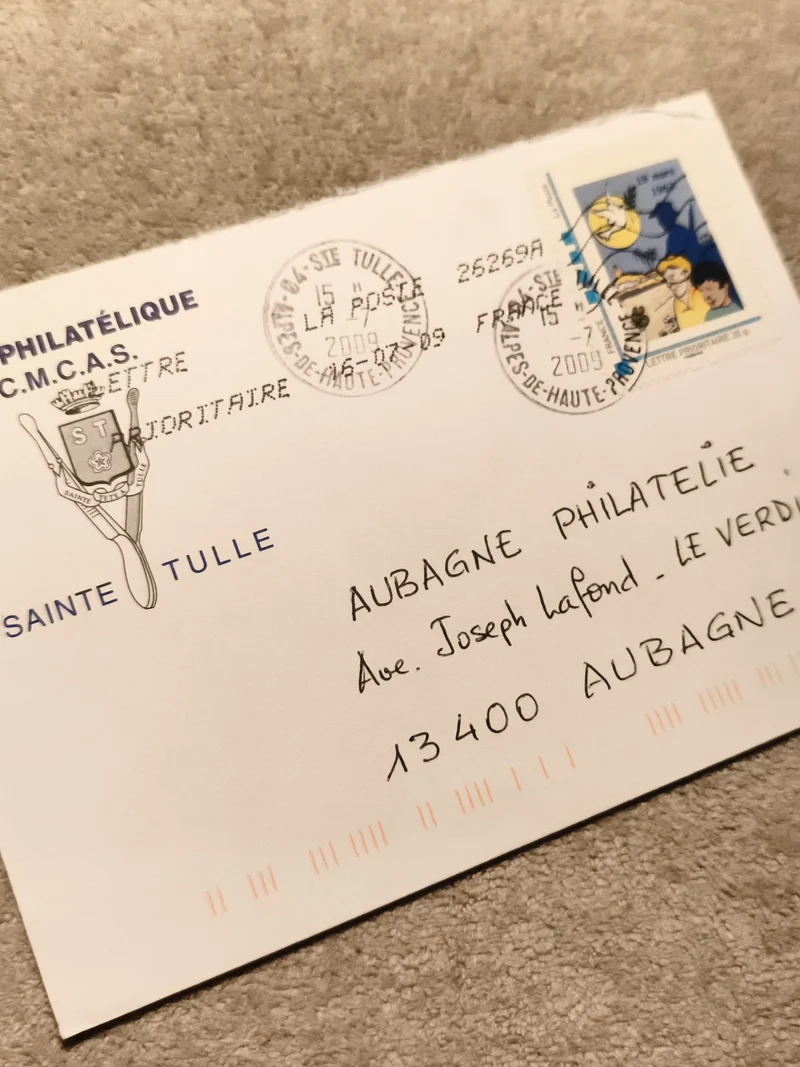 PHILATÉLIQUE
C.M.C.A.S.
S T
SAINTE TULLE
SAINTE TULLE
04-STE TULLE
15 H
-7
2009
ALPES-DE-HAUTE-PROVENCE
LA POSTE 26269A
16-07 09 FRANCE
LETTRE
PRIORITAIRE
04-STE
15
-7
2009
ALPES-DE-HAUTE-PROVENCE
19 mars
1962
FRANCE
LETTRE PRIORITAIRE 20 g
AUBAGNE PHILATELIE
Ave. Joseph Lafond - LE VERDI
13400 AUBAGNE